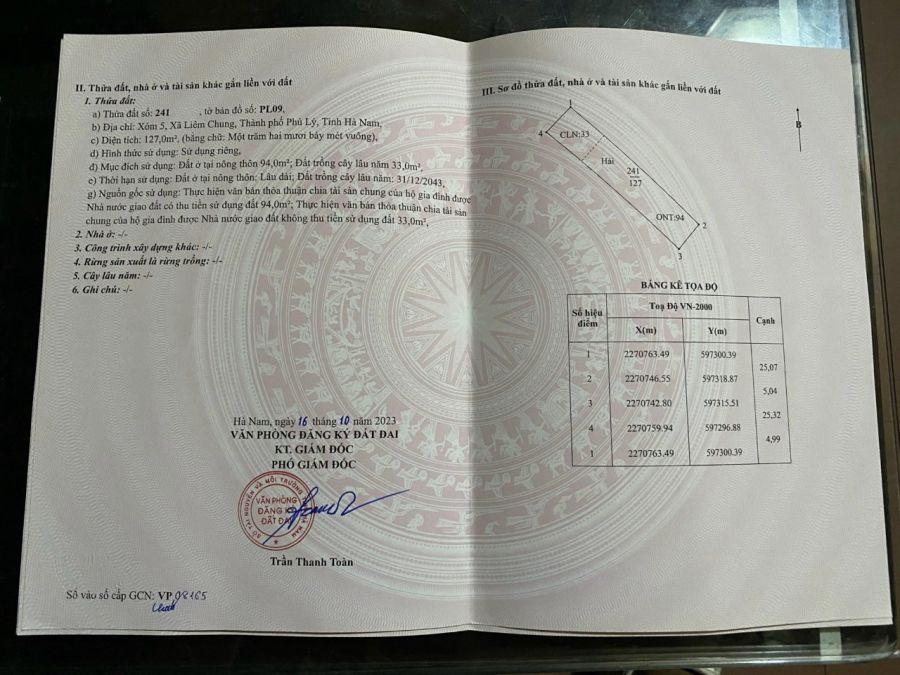 II. Thửa đất, nhà ở và tài sản khác gắn liền với đất
1. Thửa đất:
a) Thửa đất số: 241 , tờ bản đồ số: PL09,
b) Địa chỉ: Xóm 5, Xã Liêm Chung, Thành phố Phủ Lý, Tỉnh Hà Nam,
c) Diện tích: 127,0m², (bằng chữ: Một trăm hai mươi bảy mét vuông),
d) Hình thức sử dụng: Sử dụng riêng,
đ) Mục đích sử dụng: Đất ở tại nông thôn 94,0m²; Đất trồng cây lâu năm 33,0m²,
e) Thời hạn sử dụng: Đất ở tại nông thôn: Lâu dài; Đất trồng cây lâu năm: 31/12/2043,
g) Nguồn gốc sử dụng: Thực hiện văn bản thỏa thuận chia tài sản chung của hộ gia đình được
Nhà nước giao đất có thu tiền sử dụng đất 94,0m²; Thực hiện văn bản thỏa thuận chia tài sản
chung của hộ gia đình được Nhà nước giao đất không thu tiền sử dụng đất 33,0m²,
2. Nhà ở: -/-
3. Công trình xây dựng khác: -/-
4. Rừng sản xuất là rừng trồng: -/-
5. Cây lâu năm: -/-
6. Ghi chú: -/-
Hà Nam, ngày 16 tháng 10 năm 2023
VĂN PHÒNG ĐĂNG KÝ ĐẤT ĐAI
KT. GIÁM ĐỐC
PHÓ GIÁM ĐỐC
SỞ TÀI NGUYÊN VÀ MÔI TRƯỜNG HÀ NAM
VĂN PHÒNG
ĐĂNG KÝ
ĐẤT ĐAI
Trần Thanh Toàn
Số vào sổ cấp GCN: VP 08165
III. Sơ đồ thửa đất, nhà ở và tài sản khác gắn liền với đất
B
1
4
CLN:33
Hải
241
127
ONT:94
2
3
BẢNG KÊ TỌA ĐỘ
Số hiệu điểm Toạ Độ VN-2000 Cạnh
X(m) Y(m)
1 2270763.49 597300.39
25,07
2 2270746.55 597318.87
5,04
3 2270742.80 597315.51
25,32
4 2270759.94 597296.88
4,99
1 2270763.49 597300.39